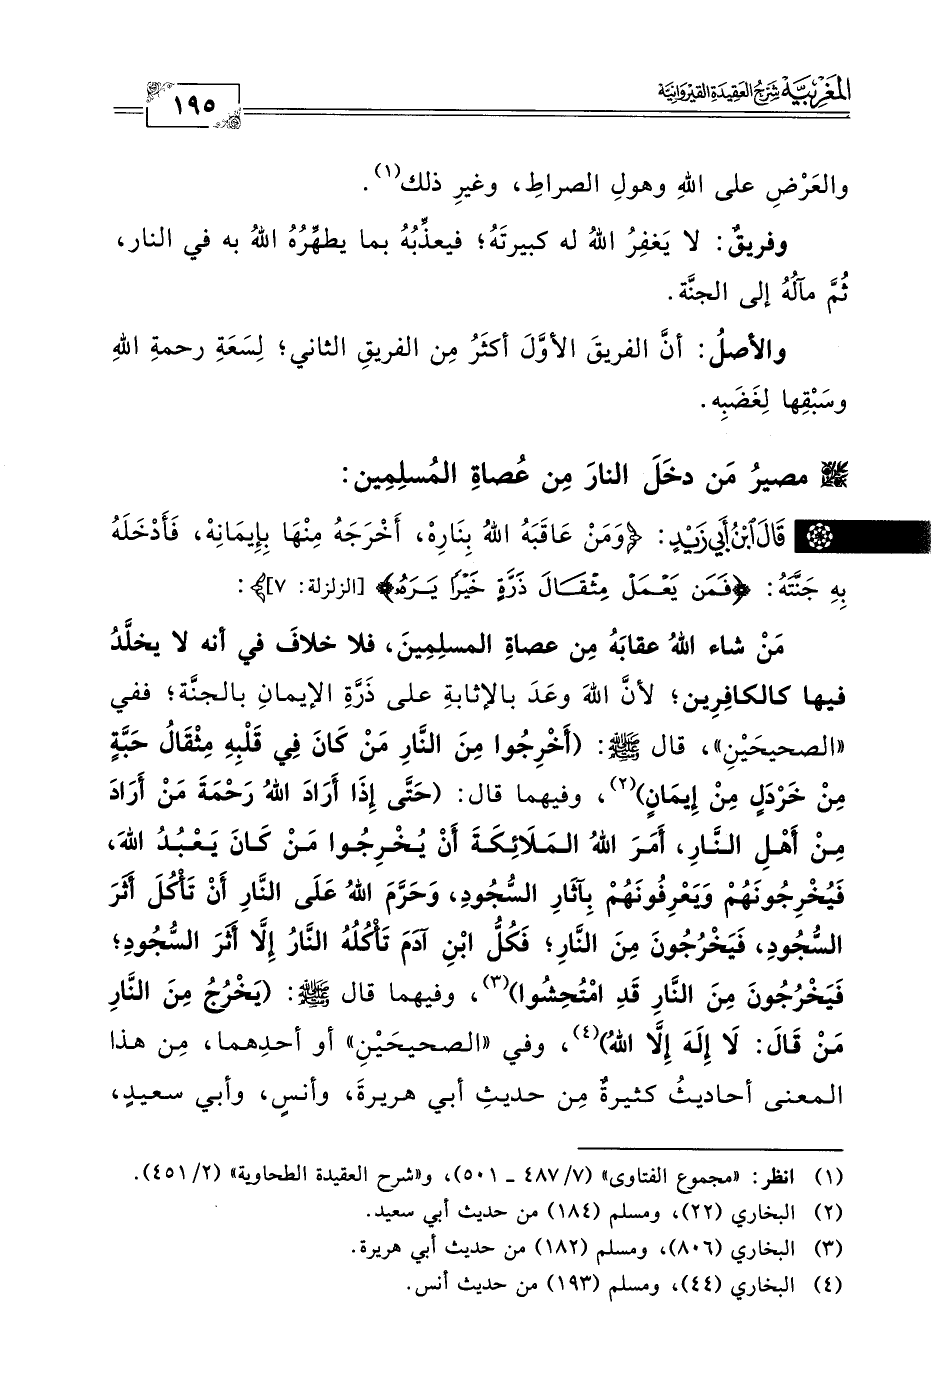 المغربية شرح العقيدة القيروانية
١٩٥
والعَرْضِ على اللهِ وهولِ الصراطِ، وغيرِ ذلك(١).
وفريقٌ: لا يَغفِرُ اللهُ له كبيرتَهُ؛ فيعذِّبُهُ بما يطهِّرُهُ اللهُ به في النار،
ثُمَّ مآلُهُ إلى الجنَّة.
والأصلُ: أنَّ الفريقَ الأوَّلَ أكثَرُ مِن الفريقِ الثاني؛ لِسَعَةِ رحمةِ اللهِ
وسَبْقِها لِغَضَبِه.
مصيرُ مَن دخَلَ النارَ مِن عُصاةِ المُسلِمِين:
قَالَ ابْنُ أَبِي زَيْدٍ: ﴿وَمَنْ عَاقَبَهُ اللهُ بِنَارِهْ، أَخْرَجَهُ مِنْهَا بِإِيمَانِهْ، فَأَدْخَلَهُ
بِهِ جَنَّتَهُ: ﴿فَمَن يَعْمَلْ مِثْقَالَ ذَرَّةٍ خَيْرًا يَرَهُۥ﴾ [الزلزلة: ٧]﴾:
مَنْ شاء اللهُ عقابَهُ مِن عصاةِ المسلِمِينَ، فلا خلافَ في أنه لا يخلَّدُ
فيها كالكافِرِين؛ لأنَّ اللهَ وعَدَ بالإثابةِ على ذَرَّةِ الإيمانِ بالجنَّة؛ ففي
«الصحيحَيْنِ»، قال ﷺ: (أَخْرِجُوا مِنَ النَّارِ مَنْ كَانَ فِي قَلْبِهِ مِثْقَالُ حَبَّةٍ
مِنْ خَرْدَلٍ مِنْ إِيمَانٍ)(٢)، وفيهما قال: (حَتَّى إِذَا أَرَادَ اللهُ رَحْمَةَ مَنْ أَرَادَ
مِنْ أَهْلِ النَّارِ، أَمَرَ اللهُ المَلَائِكَةَ أَنْ يُخْرِجُوا مَنْ كَانَ يَعْبُدُ اللهَ،
فَيُخْرِجُونَهُمْ وَيَعْرِفُونَهُمْ بِآثَارِ السُّجُودِ، وَحَرَّمَ اللهُ عَلَى النَّارِ أَنْ تَأْكُلَ أَثَرَ
السُّجُودِ، فَيَخْرُجُونَ مِنَ النَّارِ؛ فَكُلُّ ابْنِ آدَمَ تَأْكُلُهُ النَّارُ إِلَّا أَثَرَ السُّجُودِ؛
فَيَخْرُجُونَ مِنَ النَّارِ قَدِ امْتُحِشُوا)(٣)، وفيهما قال ﷺ: (يَخْرُجُ مِنَ النَّارِ
مَنْ قَالَ: لَا إِلَهَ إِلَّا اللهُ)(٤)، وفي «الصحيحَيْنِ» أو أحدِهما، مِن هذا
المعنى أحاديثُ كثيرةٌ مِن حديثِ أبي هريرةَ، وأنسٍ، وأبي سعيدٍ،
(١) انظر: «مجموع الفتاوى» (٧/ ٤٨٧ ـ ٥٠١)، و«شرح العقيدة الطحاوية» (٢/ ٤٥١).
(٢) البخاري (٢٢)، ومسلم (١٨٤) من حديث أبي سعيد.
(٣) البخاري (٨٠٦)، ومسلم (١٨٢) من حديث أبي هريرة.
(٤) البخاري (٤٤)، ومسلم (١٩٣) من حديث أنس.